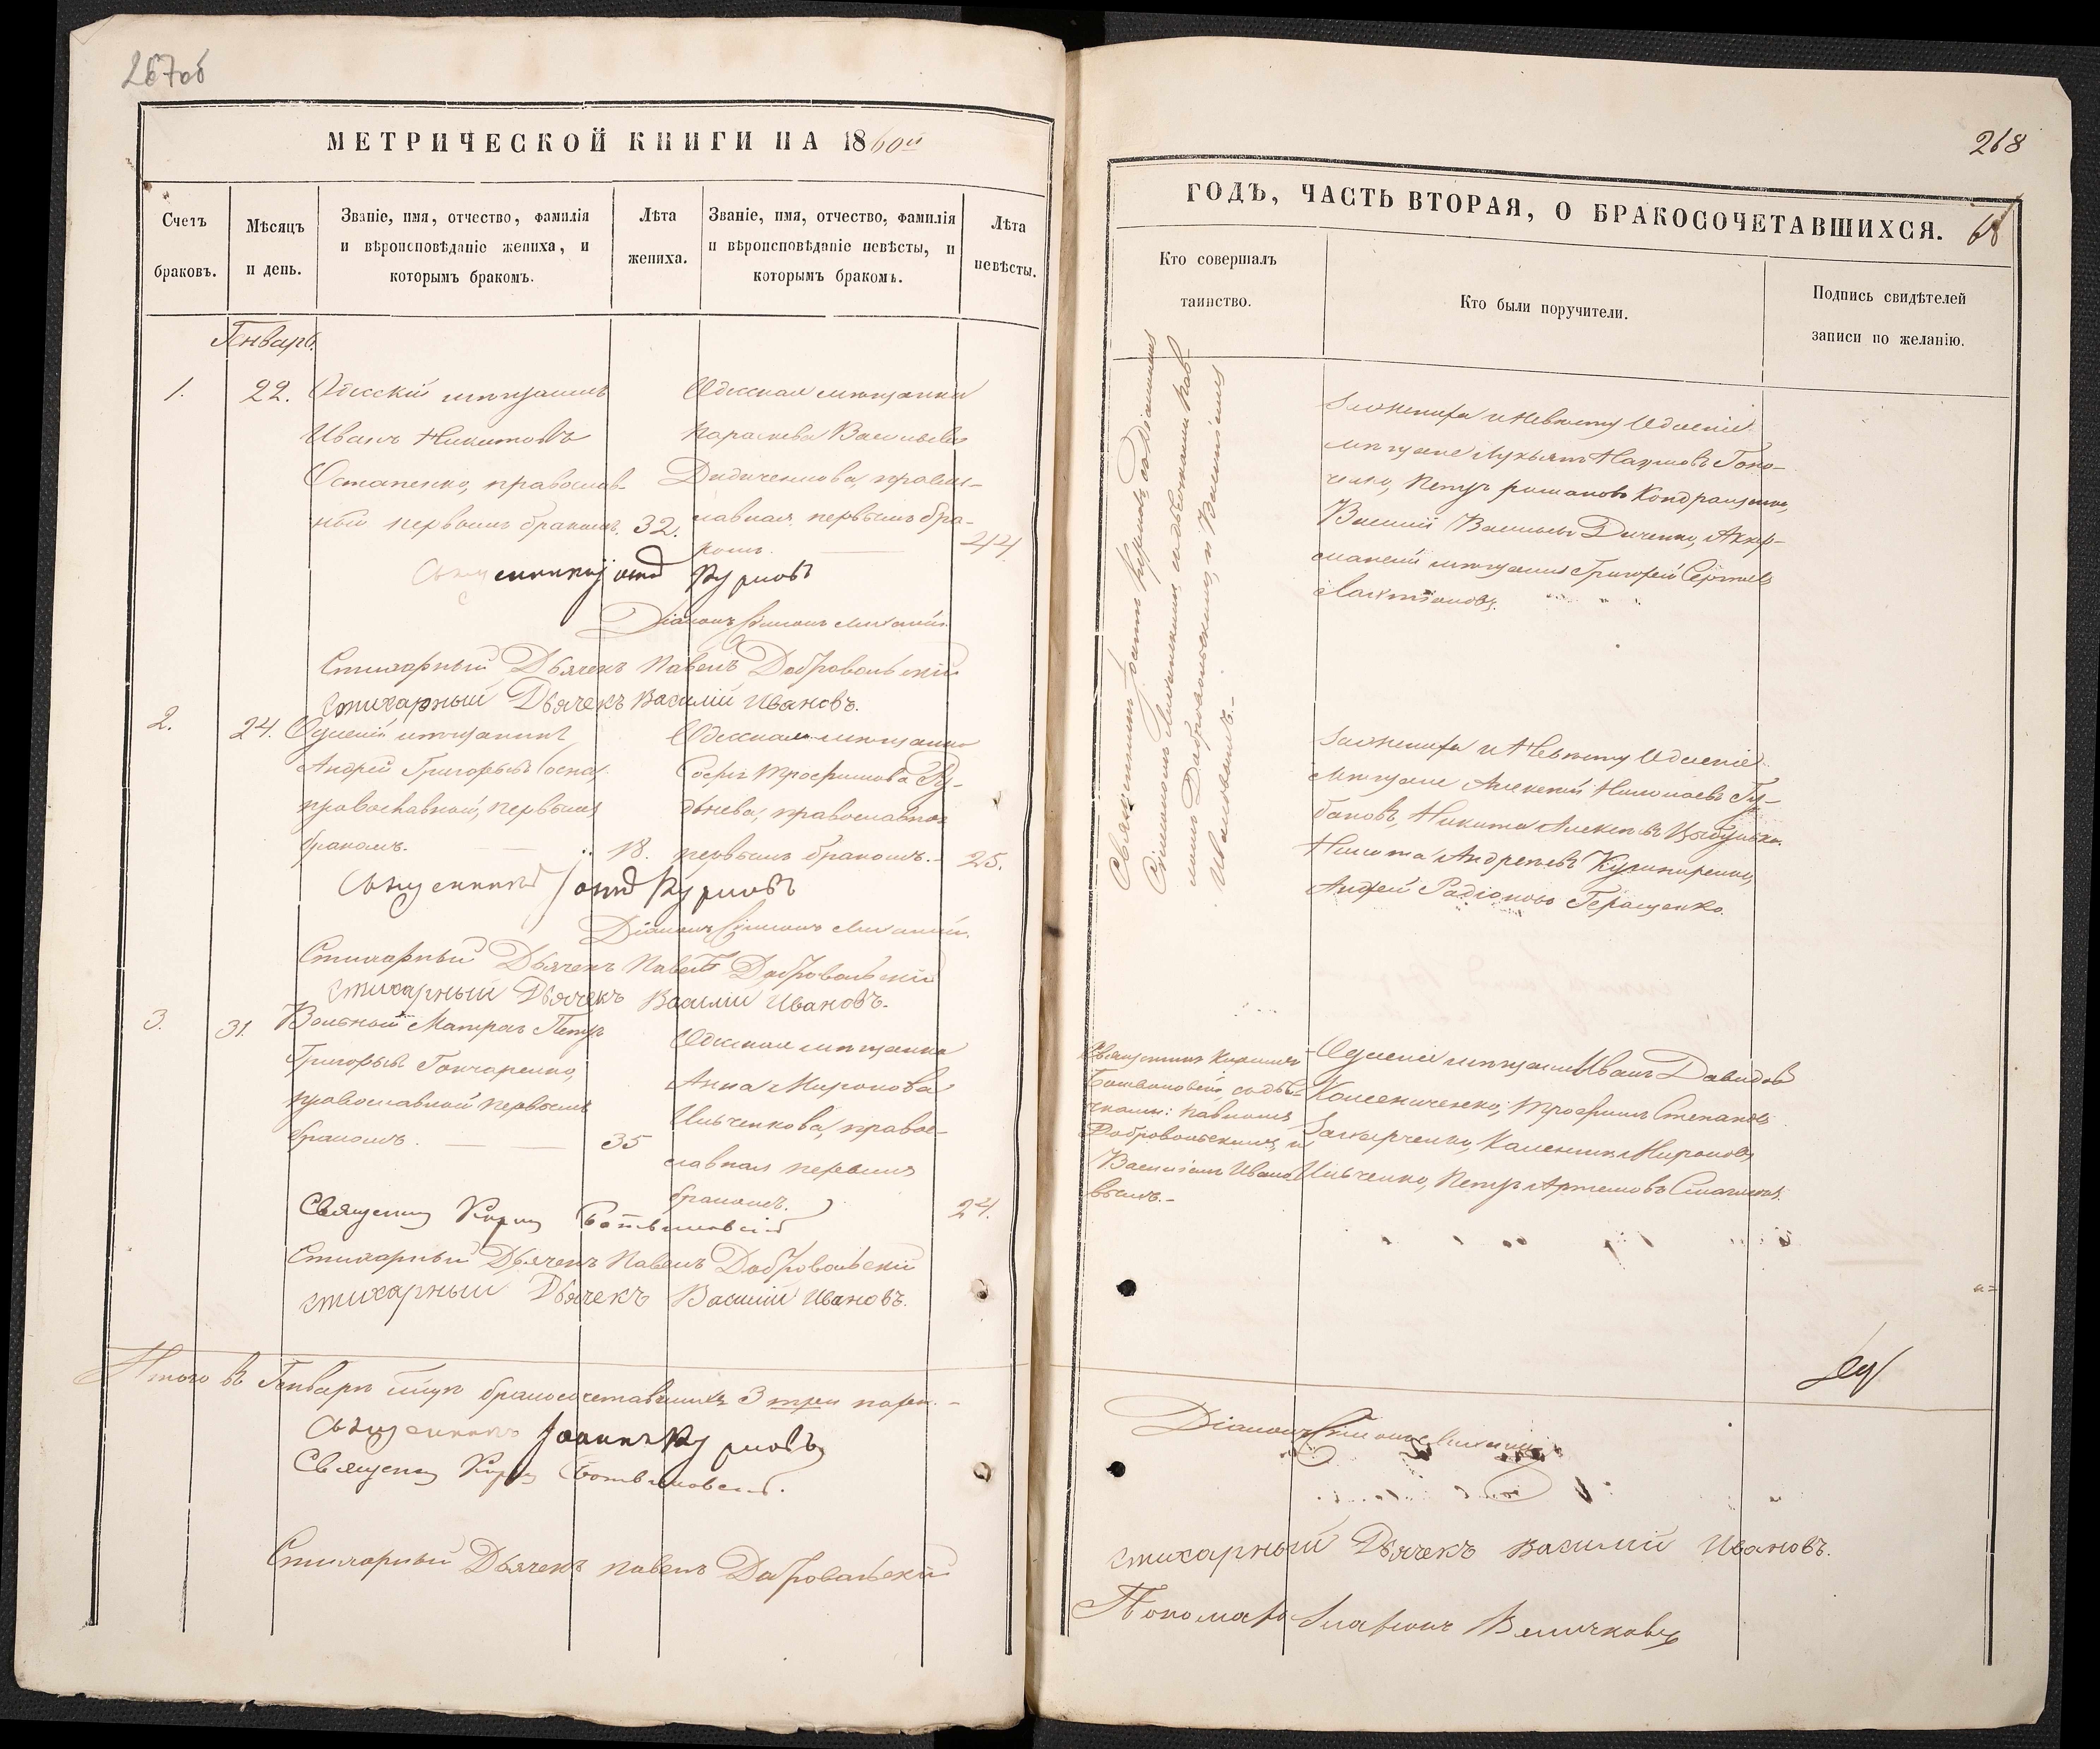 267об
МЕТРИЧЕСКОЙ КНИГИ НА 1860й
Счетъ
браковъ.
Мѣсяцъ
и день.
Званіе, имя, отчество, фамилія
и вѣроисповѣданіе жениха, и
которымъ бракомъ.
Лѣта
жениха.
Званіе, имя, отчество, фамилія
и вѣроисповѣданіе невѣсты, и
которымъ бракомъ.
Лѣта
невѣсты.
Генварь.
1.
22.
Одесскій мѣщанинъ
Иванъ Никитовъ
Остапенко, православ-
ный первымъ бракомъ.
32.
Одесская мѣщанка
Параскева Васильева
Дидиченкова, право-
славная первымъ бра-
комъ.
Священникъ Куриловъ
Діаконъ Симонъ
Стихарный Дьячекъ Павелъ Добровольскій
Стихарный Дьячекъ Василій Ивановъ.
2.
24.
Одескій мѣщанинъ
Андрей Григорьевъ
православный, первымъ
бракомъ.
18.
Одесская мѣщанка
Софія Трофимова Ру-
днева, православная
первымъ бракомъ.
25.
Священникъ Куриловъ
Діаконъ Симонъ
Стихарный Дьячекъ Павелъ Добровольскій
Стихарный Дьячекъ Василій Ивановъ.
3.
31.
Вольный Матросъ Петръ
Григорьевъ Гончаренко,
православный первымъ
бракомъ.
35
Одесская мѣщанка
Анна Миронова
Ильченкова, право-
славная первымъ
бракомъ.
24.
Священникъ Кирилъ
Стихарный Дьячекъ Павелъ Добровольскій
Стихарный Дьячекъ Василій Ивановъ.
Итого въ Генварѣ бракосочетавшихся 3 три пары.
Священникъ Іоаннъ Куриловъ
Священникъ Кирилъ
Стихарный Дьячекъ Павелъ Добровольскій
268
ГОДЪ, ЧАСТЬ ВТОРАЯ, О БРАКОСОЧЕТАВШИХСЯ.
68
Кто совершалъ
таинство.
Кто были поручители.
Подпись свидѣтелей
записи по желанію.
Священникъ Іоаннъ Куриловъ, съ Діакономъ
Симономъ съ дьячками Пав-
ломъ Добровольскимъ и Василіемъ
Ивановымъ.
По женихѣ и невѣстѣ Одескіе
мѣщане Лукьянъ Наумовъ Гон-
ченко, Петръ Романовъ Кондращенко,
Василій Васильевъ Диченко, Аккер-
манскій мѣщанинъ Григорій Сергіевъ
По женихѣ и Невѣстѣ Одескіе
Мѣщане Алексѣй Николаевъ Гу-
бановъ, Никита Алексѣевъ
Никита Андреевъ
Андрей Радіоновъ Геращенко.
Священникъ Кирилъ
съ дья-
чками: Павломъ
Добровольскимъ, и
Василіемъ Ивано-
вымъ.
Одескіе мѣщане Иванъ Давидовъ
Трофимъ Степановъ
Захарченко, Каленикъ Мироновъ
Ильченко, Петръ Артемовъ
Діаконъ Симонъ
Стихарный Дьячекъ Василій Ивановъ.
Пономарь Иларіонъ Величковъ